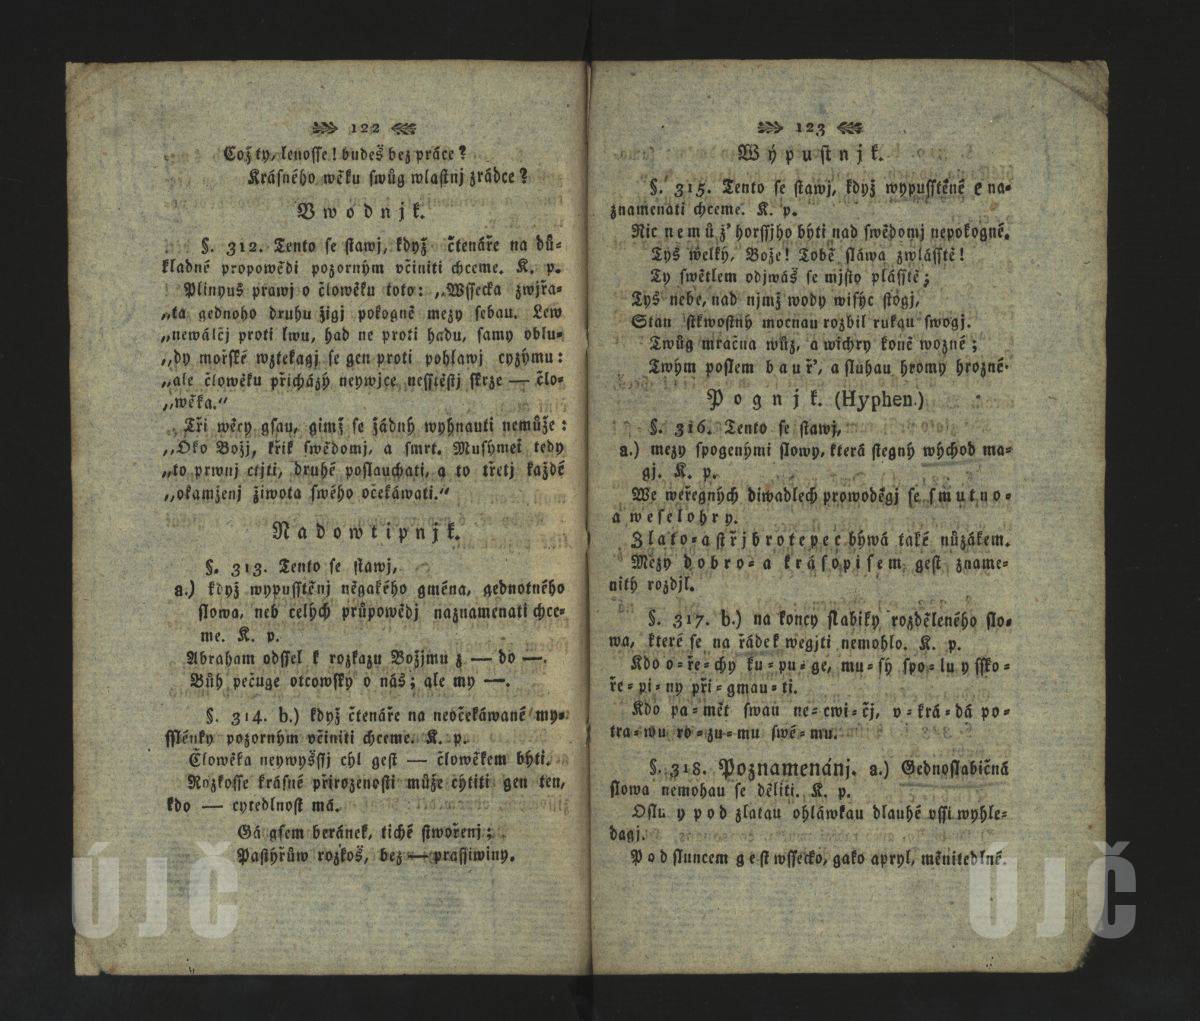 122
Což ty, lenosse! budeš bez práce?
Krásného wěku swůg wlastnj zrádce?
Vwodnjk.
§. 312. Tento se stawj, když čtenáře na dů-
kladné propowědi pozorným včiniti chceme. K. p.
Plinyus prawj o člowěku toto: „Wssecka zwjřa-
„ta gednoho druhu žigj pokogně mezy sebau. Lew
„newálčj proti lwu, had ne proti hadu, samy oblu-
„dy mořské wztekagj se gen proti pohlawj cyzýmu:
„ale člowěku přicházý neywjce nesstěstj skrze — člo-
„wěka.“
Tři wěcy gsau, gimž se žádný wyhnauti nemůže:
„Oko Božj, křik swědomj, a smrt. Musýmeť tedy
„to prwnj ctjti, druhé poslauchati, a to třetj každé
„okamženj žiwota swého očekáwati.“
Nadowtipnjk.
§. 313. Tento se stawj,
a.) když wypusstěnj něgakého gména, gednotného
slowa, neb celých průpowědj naznamenati chce-
me. K. p.
Abraham odssel k rozkazu Božjmu z — do —.
Bůh pečuge otcowsky o nás; ale my —.
§. 314. b.) když čtenáře na neočekáwané my-
sslénky pozorným včiniti chceme. K. p.
Člowěka neywyšssj cýl gest — člowěkem býti.
Rozkosse krásné přirozenosti může cýtiti gen ten,
kdo — cytedlnost má.
Gá gsem beránek, tiché stwořenj;
Pastýřůw rozkoš, bez — prassiwiny.
ÚJČ
123
Wýpustnjk.
§. 315. Tento se stawj, když wypusstěné e na-
znamenati chceme. K. p.
Nic nemůž' horssjho býti nad swědomj nepokogné.
Tyś welký, Bože! Tobě sláwa zwlásstě!
Ty swětlem odjwáš se mjsto plásstě;
Tyś nebe, nad njmž wody wisýc stogj,
Stan stkwostný mocnau rozbil rukau swogj.
Twůg mračna wůz, a wichry koně wozné;
Twým poslem bauř', a sluhau hromy hrozné.
Pognjk. (Hyphen.)
§. 316. Tento se stawj,
a.) mezy spogenými slowy, která stegný wýchod ma-
gj. K. p.
We weřegných diwadlech prowoděgj se smutno-
a weselohry.
Zlato-a střjbrotepec býwá také nůzákem.
Mezy dobro-a krásopisem gest zname-
nitý rozdjl.
§. 317. b.) na koncy slabiky rozděleného slo-
wa, které se na řádek wegjti nemohlo. K. p.
Kdo o-ře-chy ku-pu-ge, mu-sý spo-lu y ssko-
ře-pi-ny při-gmau-ti.
Kdo pa-mět swau ne-cwi-čj, v-krá-dá po-
tra-wu ro-zu-mu swé-mu.
§. 318. Poznamenánj. a.) Gednoslabičná
slowa nemohau se děliti. K. p.
Oslu y pod zlatau ohláwkau dlauhé vssi wyhle-
dagj.
Pod sluncem gest wssecko, gako apryl, měnitedlné.
ÚJČ